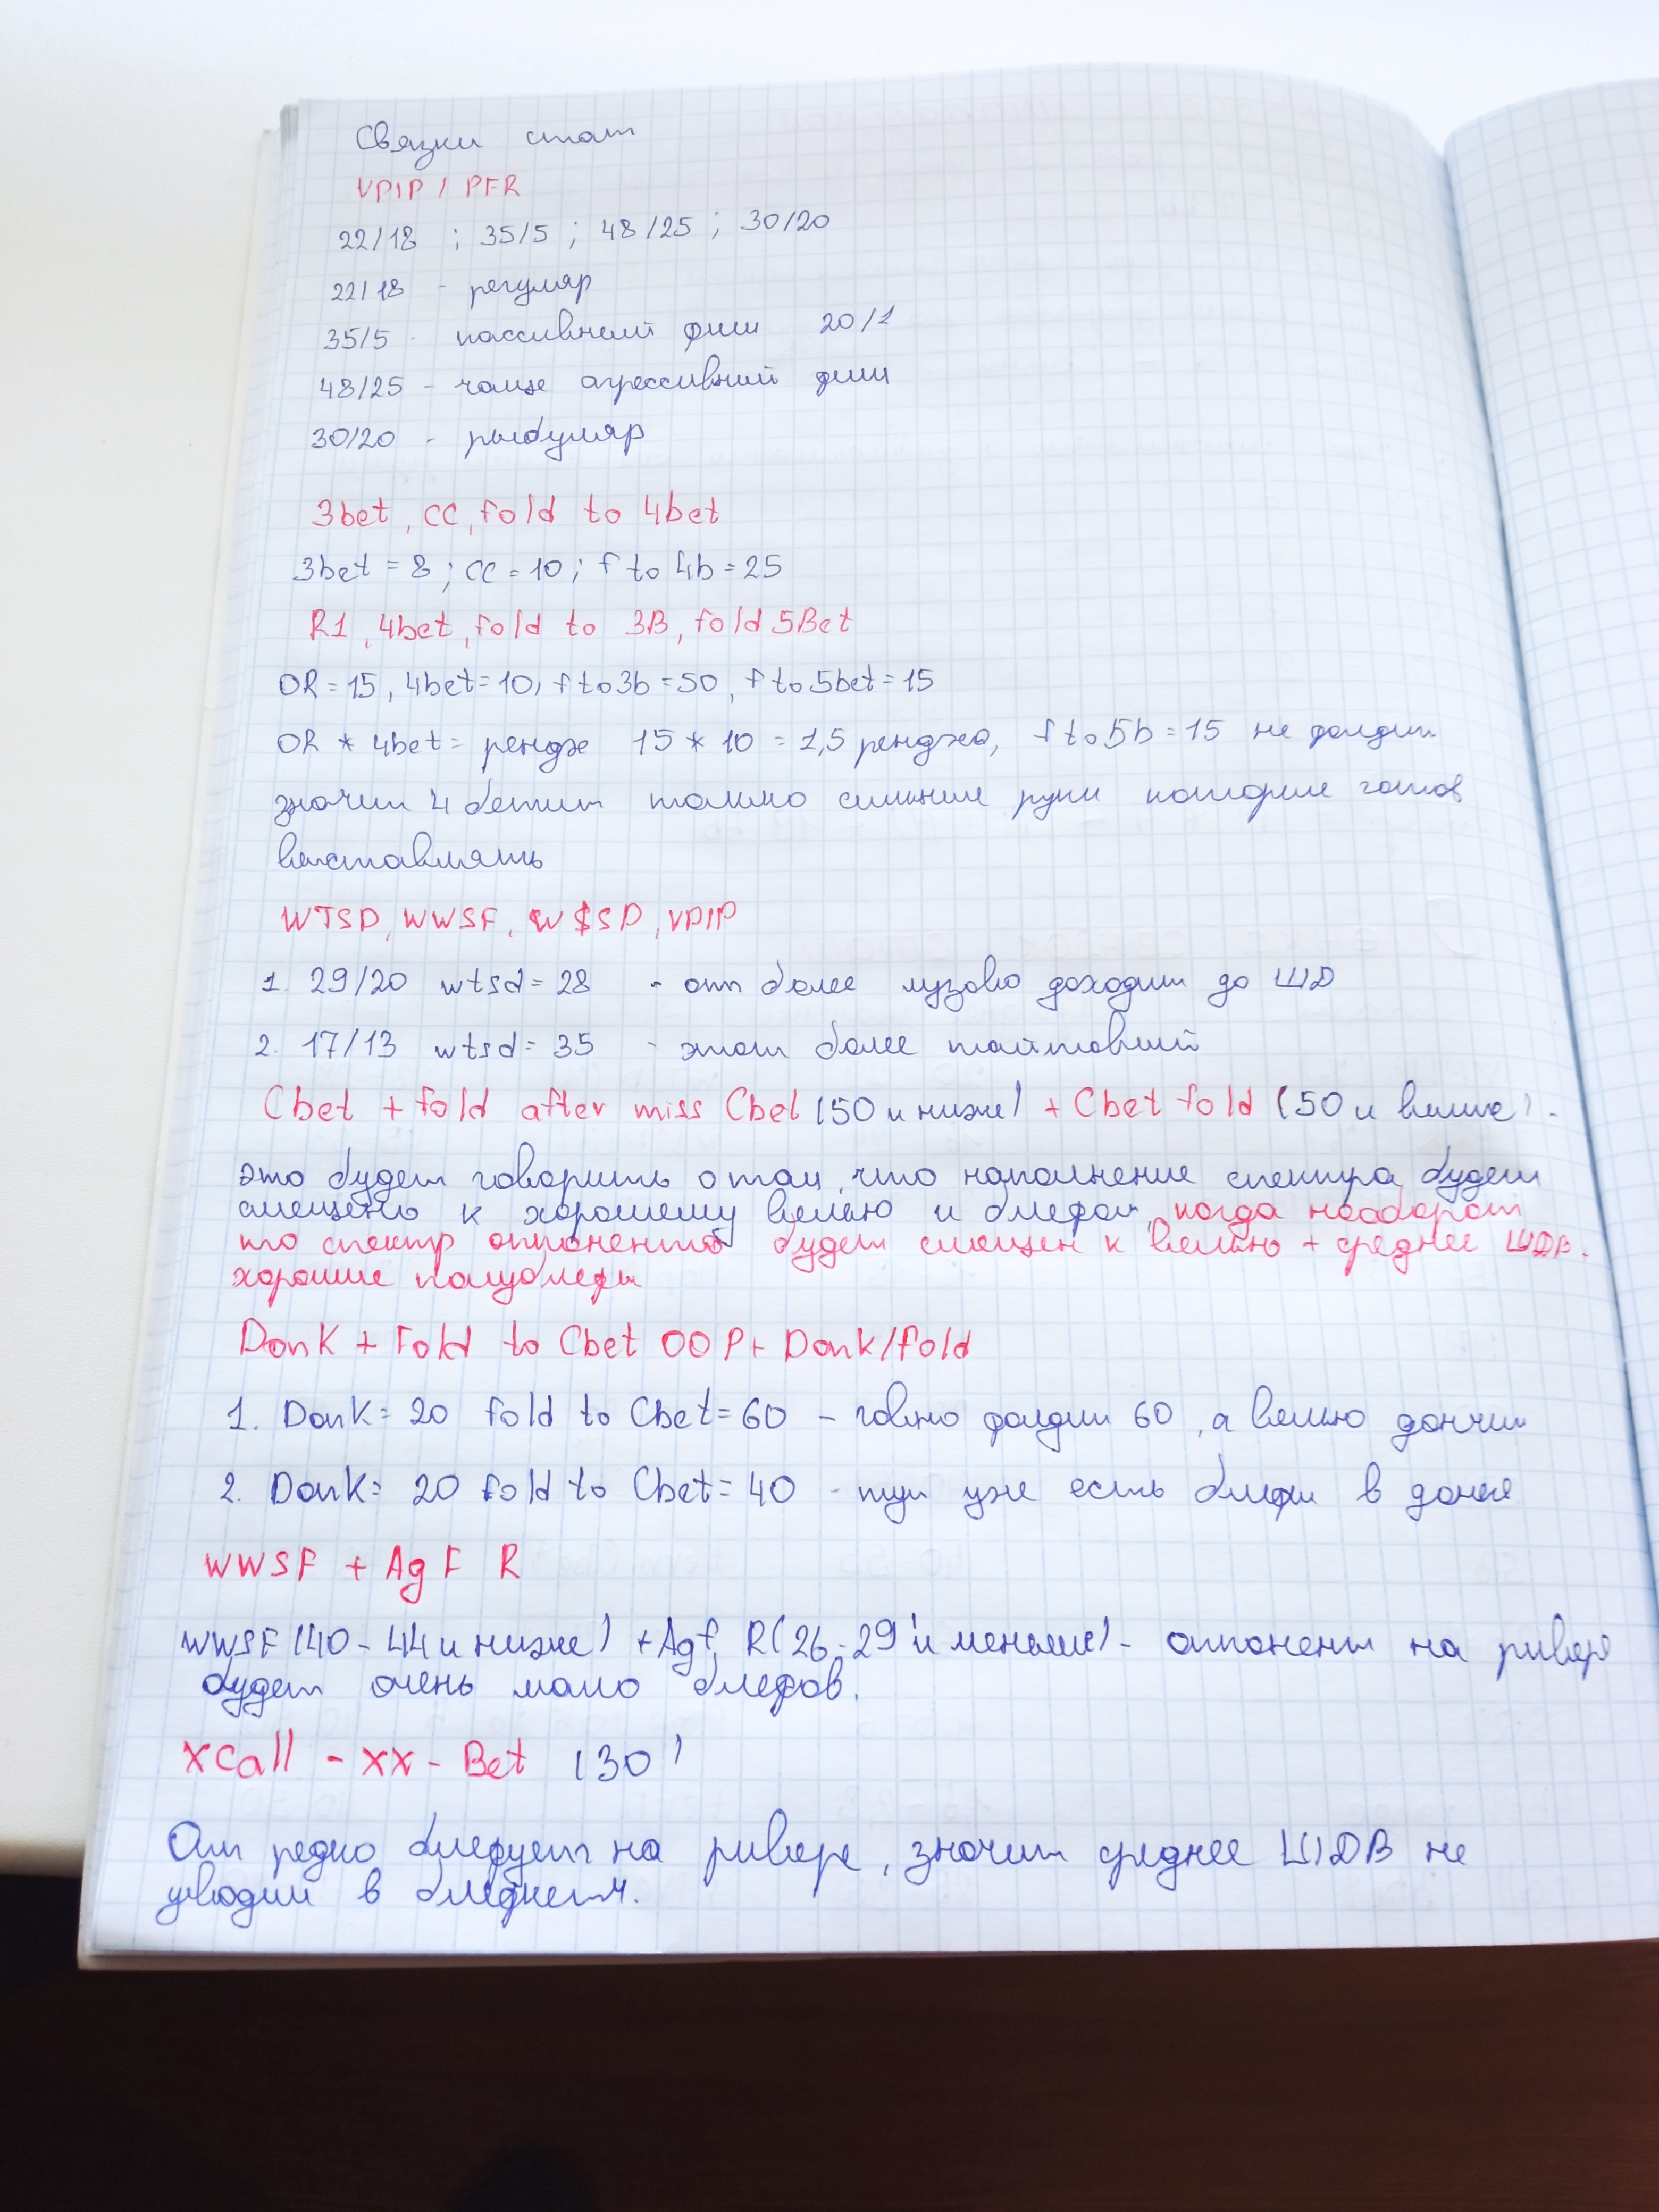 Связки стат
VPIP / PFR
22/18 ; 35/5 ; 48/25 ; 30/20
22/18 - регуляр
35/5 - пассивный фиш 20/1
48/25 - чаще агрессивный фиш
30/20 - рыбуляр
3bet, CC, fold to 4bet
3bet = 8 ; CC = 10 ; f to 4b = 25
R1, 4bet, fold to 3B, fold 5Bet
OR = 15, 4bet = 10, f to 3b = 50, f to 5bet = 15
OR * 4bet = рендж 15 * 10 = 1,5 ренджа, f to 5b = 15 не фолдит
значит 4 бетит только сильные руки которые готов
выставлять
WTSD, WWSF, W$SD, VPIP
1. 29/20 wtsd = 28 - опп более лузово доходит до ШД
2. 17/13 wtsd = 35 - этот более тайтовый
Cbet + fold after miss Cbet (50 и ниже) + Cbet fold (50 и выше) -
это будет говорить о том, что наполнение спектра будет
смещено к хорошему велью и блефам, когда наоборот
то спектр оппонента будет смещен к велью + среднее ШДВ.
хорошие полублефы
Donk + Fold to Cbet OOP + Donk/fold
1. Donk = 20 fold to Cbet = 60 - говно фолдит 60, а велью дончит
2. Donk = 20 fold to Cbet = 40 - тут уже есть блефы в донке
WWSF + AgF R
WWSF (40 - 44 и ниже) + Agf R (26 - 29 и меньше) - оппонент на ривере
будет очень мало блефов.
xCall - xx - Bet (30)
Опп редко блефует на ривере, значит среднее ШДВ не
уводит в